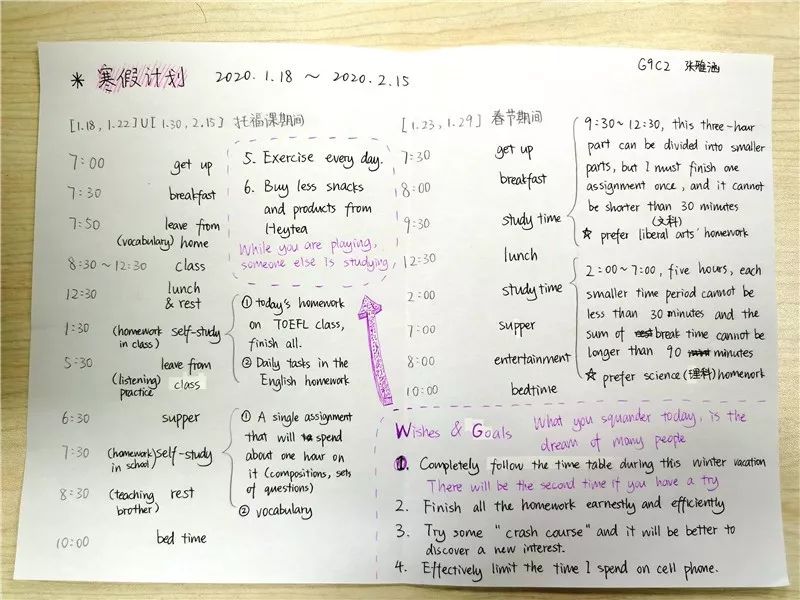 * 寒假计划 2020.1.18 ~ 2020.2.15
G9C2 张雅涵
[1.18, 1.22] U [1.30, 2.15] 托福课期间
7:00 get up
7:30 breakfast
7:50 leave from
(vocabulary) home
8:30 ~ 12:30 class
12:30 lunch
& rest
1:30 (homework self-study
in class)
① today's homework
on TOEFL class,
finish all.
② Daily tasks in the
English homework
5:30 leave from
(listening) class
practice
6:30 supper
7:30 (homework) self-study
in school)
① A single assignment
that will spend
about one hour on
it (compositions, sets
of questions)
② vocabulary
8:30 (teaching rest
brother)
10:00 bed time
5. Exercise every day.
6. Buy less snacks
and products from
Heytea
While you are playing,
someone else is studying
[1.23, 1.29] 春节期间
7:30 get up
8:00 breakfast
9:30 study time
9:30~12:30, this three-hour
part can be divided into smaller
parts, but I must finish one
assignment once, and it cannot
be shorter than 30 minutes
(文科)
☆ prefer liberal arts' homework
12:30 lunch
2:00 study time
2:00~7:00, five hours, each
smaller time period cannot be
less than 30 minutes and the
sum of break time cannot be
longer than 90 minutes
☆ prefer science (理科) homework
7:00 supper
8:00 entertainment
10:00 bedtime
Wishes & Goals What you squander today, is the
dream of many people
1. Completely follow the time table during this winter vacation
There will be the second time if you have a try
2. Finish all the homework earnestly and efficiently
3. Try some "crash course" and it will be better to
discover a new interest.
4. Effectively limit the time I spend on cell phone.